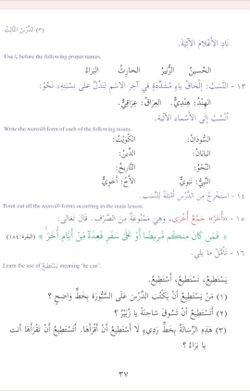 (٣) الدَّرْسُ الثَّالِثُ
نَادِ الْأَعْلَامَ الْآتِيَةَ.
Use يَا before the following proper names.
الحسينُ الزُّبَيْرُ الحارِثُ البَرَاءُ
١٣ - النَّسَبُ: إِلْحَاقُ يَاءٍ مُشَدَّدَةٍ فِي آخِرِ الِاسْمِ لِتَدُلَّ عَلَى نِسْبَتِهِ، نَحْوُ:
الْهِنْدُ: هِنْدِيٌّ. الْعِرَاقُ: عِرَاقِيٌّ.
اُنْسُبْ إِلَى الْأَسْمَاءِ الْآتِيَةِ.
Write the mansūb form of each of the following nouns.
السُّودَانُ: الْكُوَيْتُ:
الْيَابَانُ: الدِّينُ:
النَّحْوُ: التَّارِيخُ:
النَّبِيُّ: نَبَوِيٌّ الْأَخُ: أَخَوِيٌّ
١٤ - اسْتَخْرِجْ مِنَ الدَّرْسِ أَمْثِلَةً لِلنَّسَبِ.
Point out all the mansūb forms occurring in the main lesson.
١٥ - «أُخَرُ» جَمْعُ أُخْرَى، وَهِيَ مَمْنُوعَةٌ مِنَ الصَّرْفِ. قَالَ تَعَالَى:
﴿ فَمَن كَانَ مِنكُم مَّرِيضًا أَوْ عَلَىٰ سَفَرٍ فَعِدَّةٌ مِّنْ أَيَّامٍ أُخَرَ ﴾ (البقرة: ١٨٤)
١٦ - تَأَمَّلْ مَا يَلِي.
Learn the use of يَسْتَطِيعُ meaning 'he can'.
يَسْتَطِيعُ، تَسْتَطِيعُ، أَسْتَطِيعُ.
(١) مَنْ يَسْتَطِيعُ أَنْ يَكْتُبَ الدَّرْسَ عَلَى السَّبُّورَةِ بِخَطٍّ وَاضِحٍ ؟
(٢) أَتَسْتَطِيعُ أَنْ تَسُوقَ شَاحِنَةً يَا زُبَيْرُ ؟
(٣) هَذِهِ الرِّسَالَةُ بِخَطٍّ رَدِيءٍ لَا أَسْتَطِيعُ أَنْ أَقْرَأَهَا. أَتَسْتَطِيعُ أَنْ تَقْرَأَهَا أَنْتَ
يَا بَرَاءُ ؟
٣٧